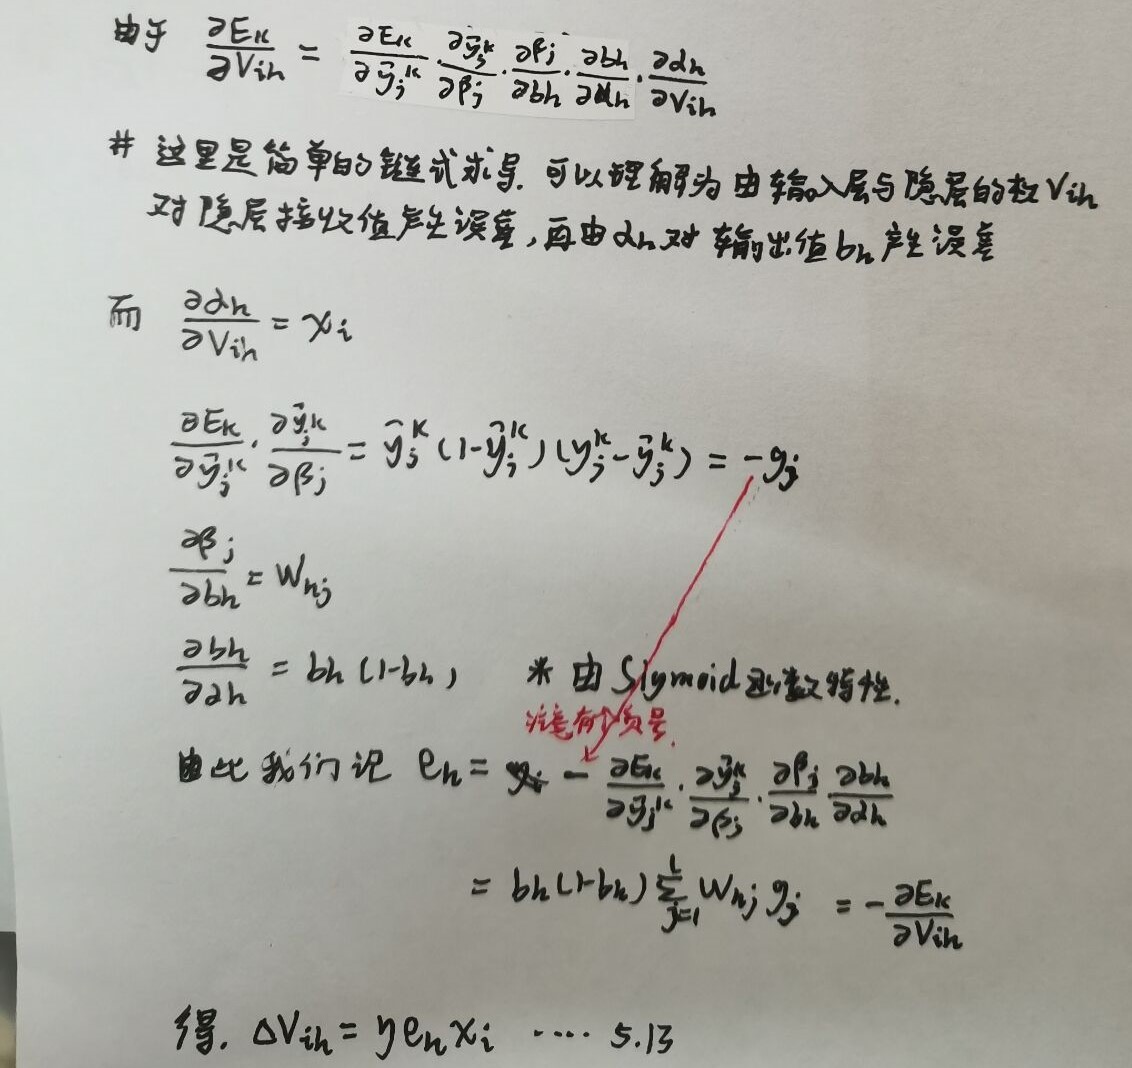 由于 ∂Eₖ/∂Vᵢₕ = ∂Eₖ/∂ŷⱼᵏ · ∂ŷⱼᵏ/∂βⱼ · ∂βⱼ/∂bₕ · ∂bₕ/∂αₕ · ∂αₕ/∂Vᵢₕ
# 这里是简单的链式求导. 可以理解为由输入层与隐层的权Vᵢₕ
对隐层接收值产生误差,再由αₕ对输出值bₕ产生误差
而 ∂αₕ/∂Vᵢₕ = xᵢ
∂Eₖ/∂ŷⱼᵏ · ∂ŷⱼᵏ/∂βⱼ = ŷⱼᵏ(1-ŷⱼᵏ)(yⱼᵏ-ŷⱼᵏ) = -gⱼ
∂βⱼ/∂bₕ = Wₕⱼ
∂bₕ/∂αₕ = bₕ(1-bₕ) * 由Sigmoid函数特性.
注意有个负号.
由此我们记 eₕ = - ∂Eₖ/∂ŷⱼᵏ · ∂ŷⱼᵏ/∂βⱼ · ∂βⱼ/∂bₕ · ∂bₕ/∂αₕ
= bₕ(1-bₕ) Σⱼ₌₁ˡ Wₕⱼ gⱼ = -∂Eₖ/∂Vᵢₕ
得. ΔVᵢₕ = ηeₕxᵢ ···· 5.13